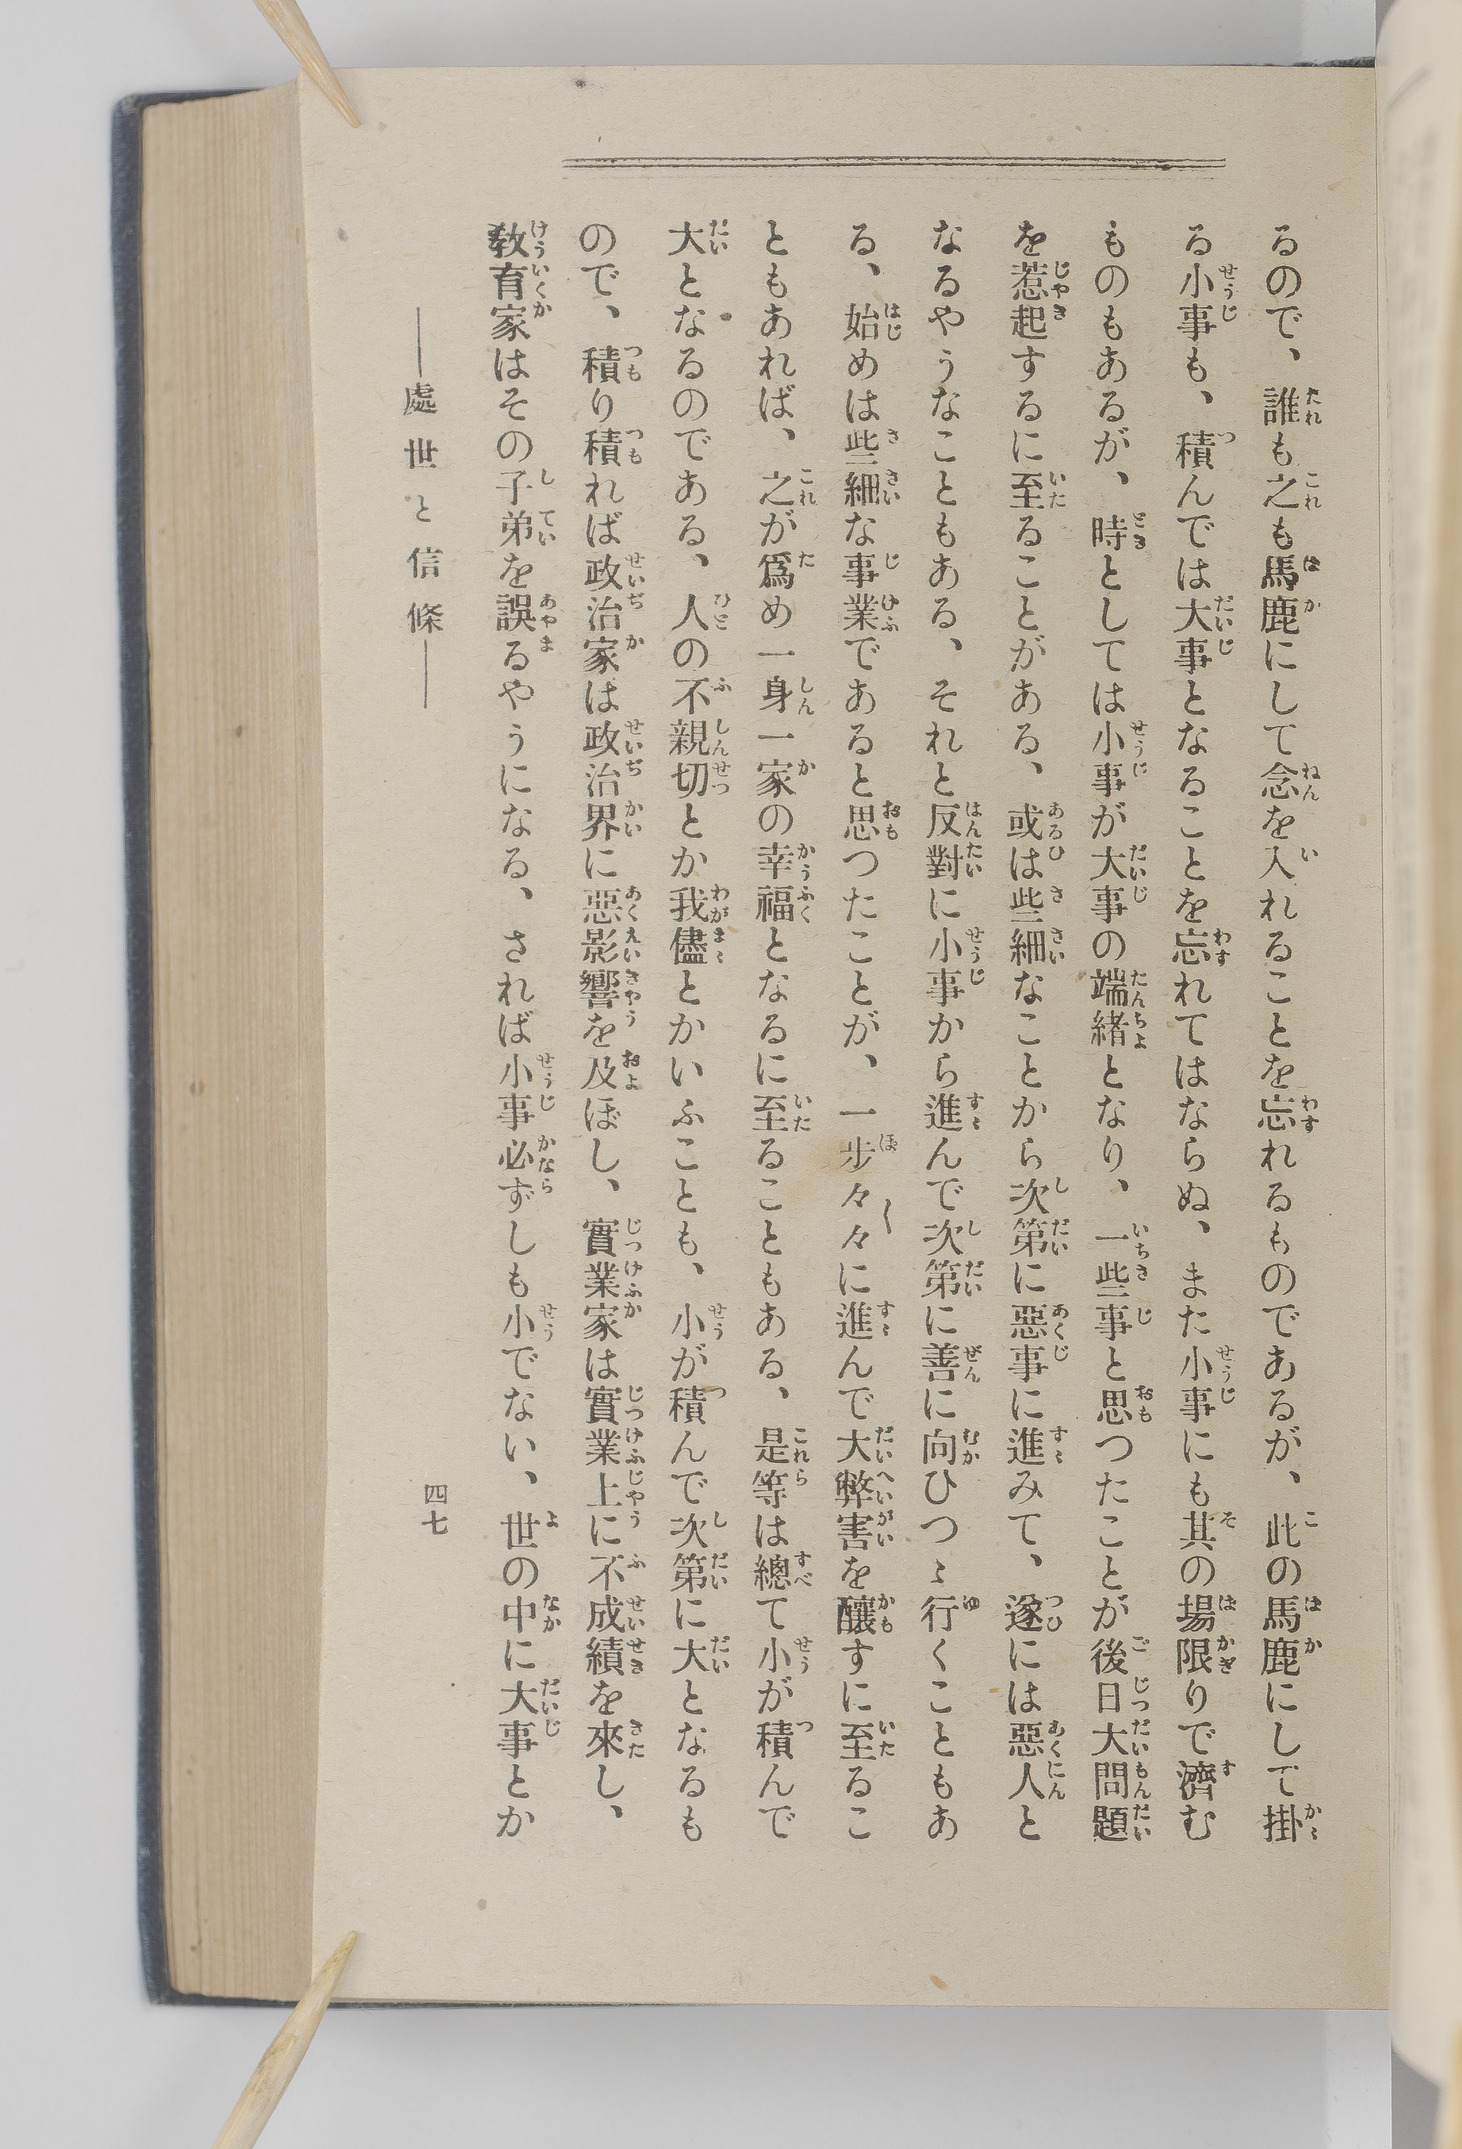 るので、誰も之も馬鹿にして念を入れることを忘れるものであるが、此の馬鹿にして掛
る小事も、積んでは大事となることを忘れてはならぬ、また小事にも其の場限りで濟む
ものもあるが、時としては小事が大事の端緒となり、一些事と思つたことが後日大問題
を惹起するに至ることがある、或は些細なことから次第に惡事に進みて、遂には惡人と
なるやうなこともある、それと反對に小事から進んで次第に善に向ひつゝ行くこともあ
る、始めは些細な事業であると思つたことが、一步々々に進んで大弊害を釀すに至るこ
ともあれば、之が爲め一身一家の幸福となるに至ることもある、是等は總て小が積んで
大となるのである、人の不親切とか我儘とかいふことも、小が積んで次第に大となるも
ので、積り積れば政治家は政治界に惡影響を及ぼし、實業家は實業上に不成績を來し、
敎育家はその子弟を誤るやうになる、されば小事必ずしも小でない、世の中に大事とか
――處世と信條――
四七